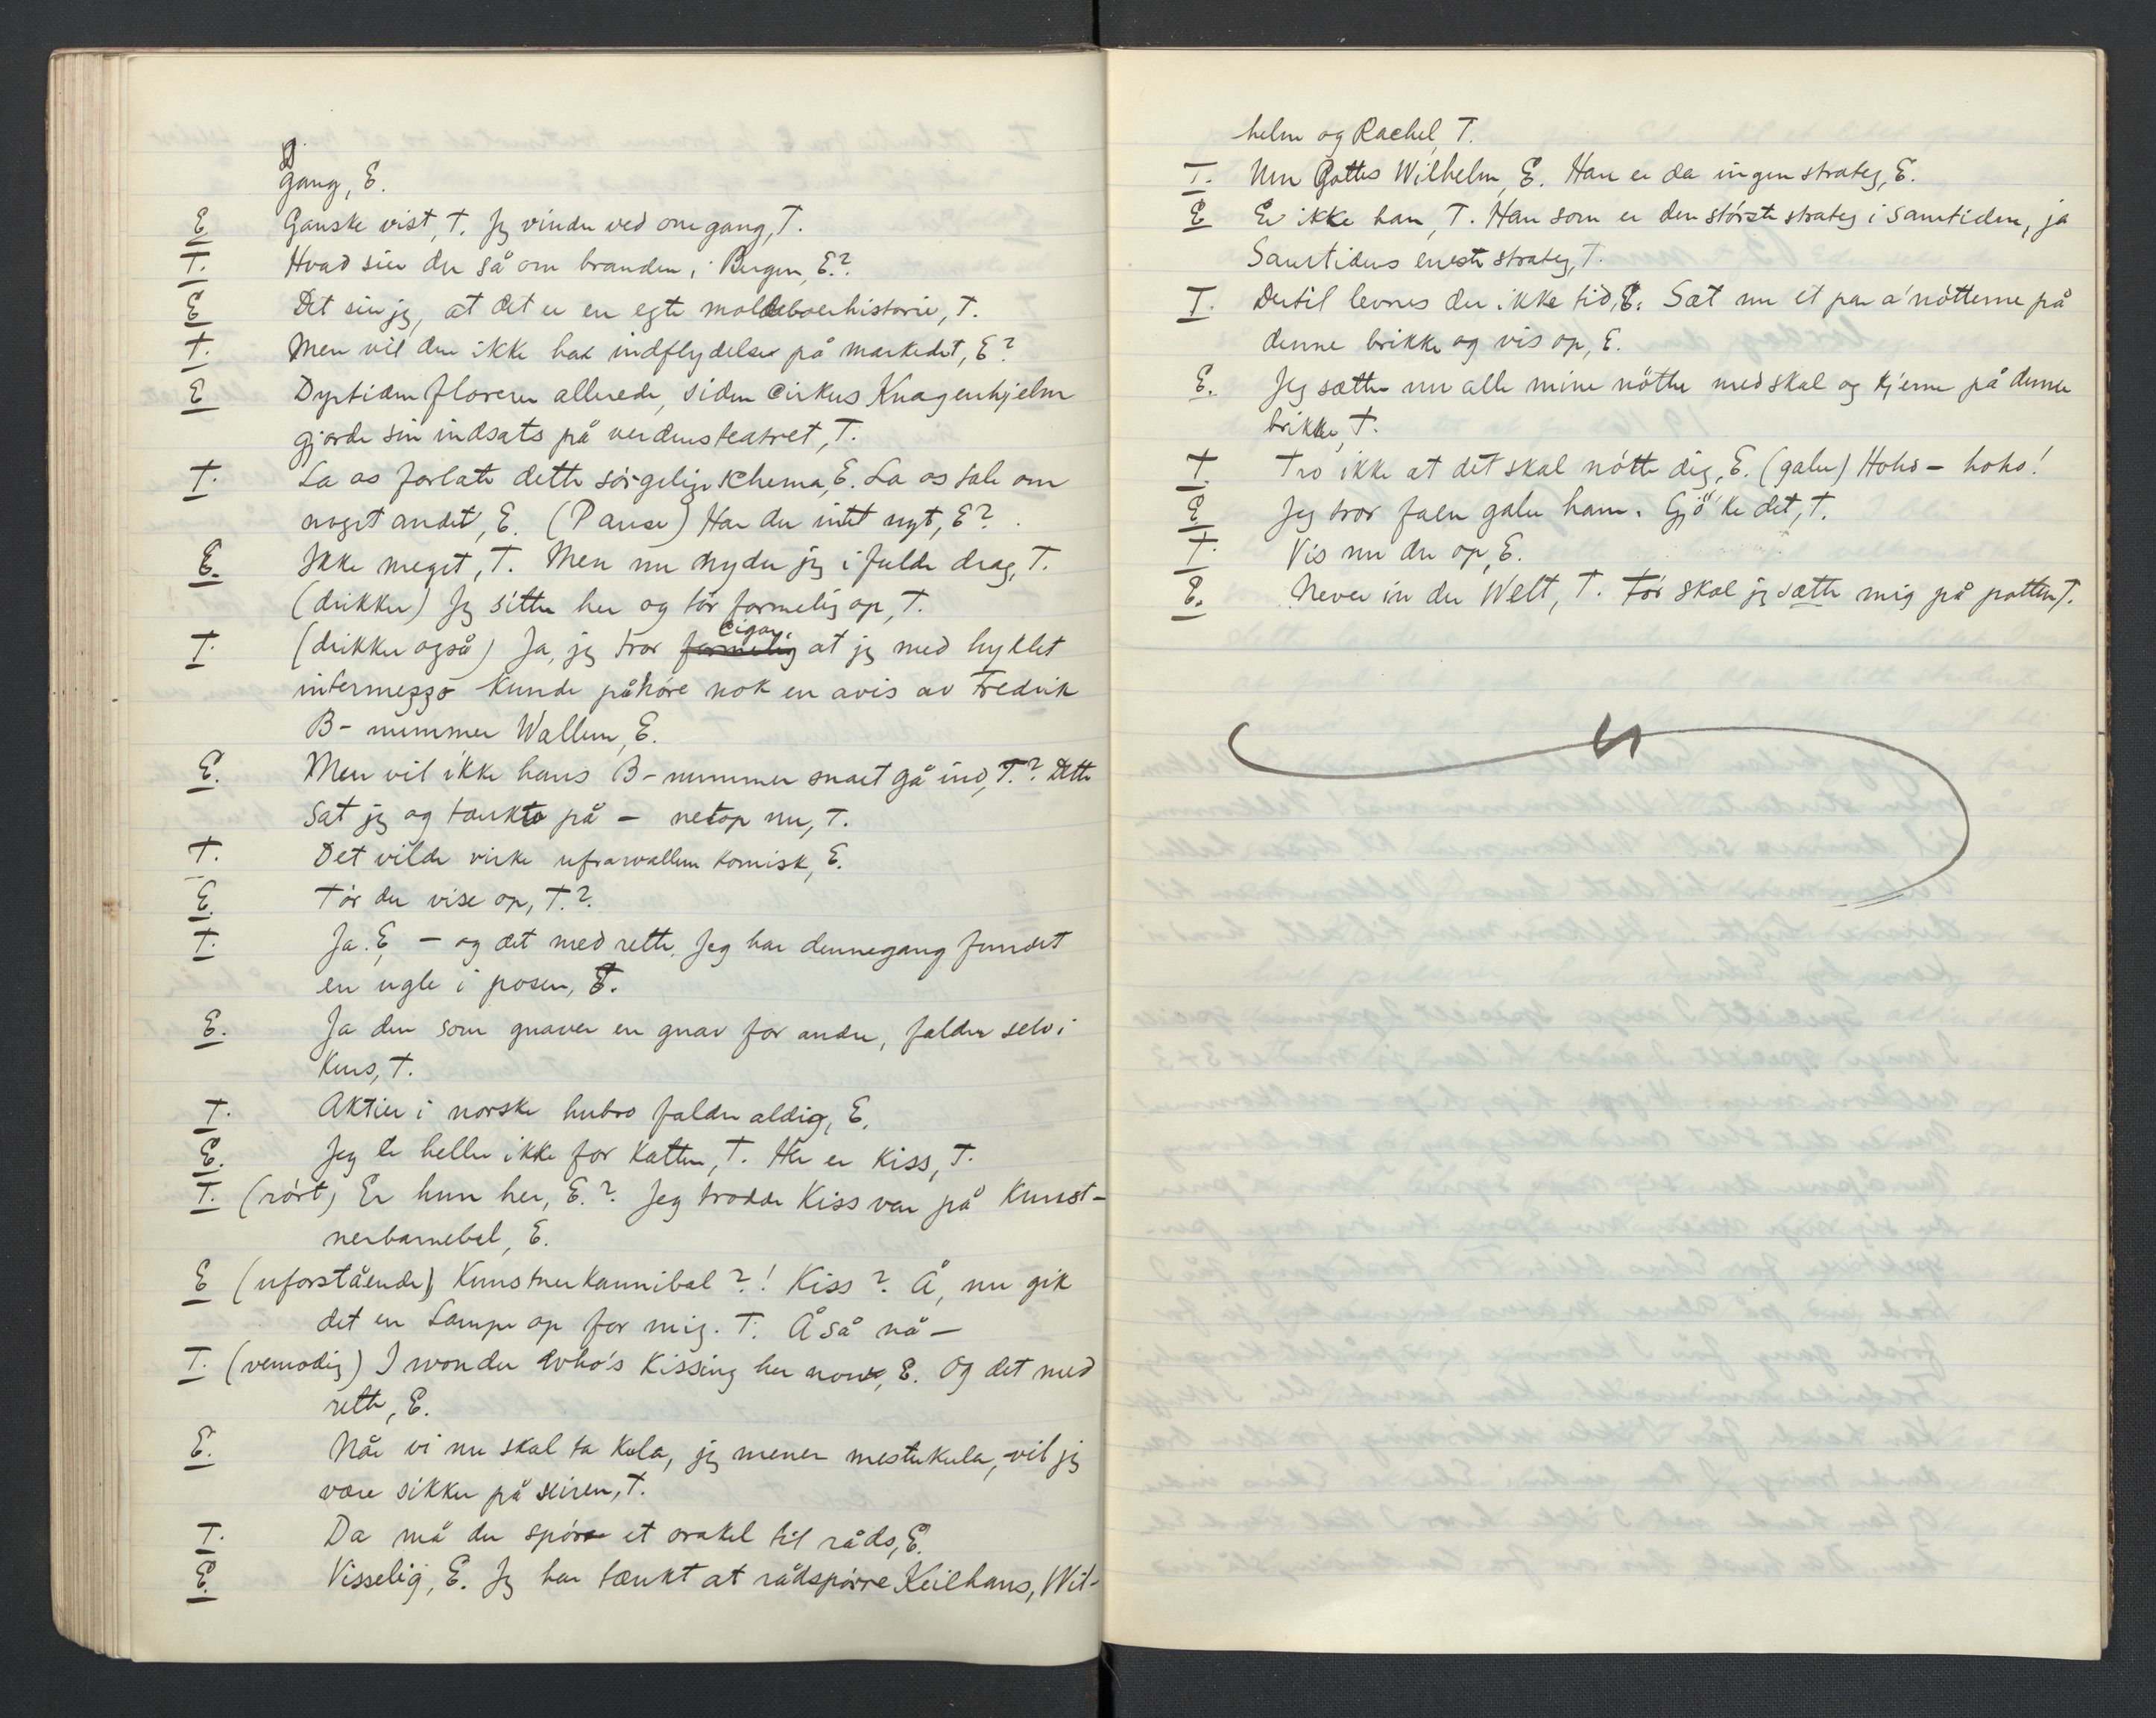 gang, E.
E Ganske vist, T. Jeg vinder ved omegang, T.
T. Hvad sier du så om branden i Bergen, E.?
E Det sier jeg, at det er en egte moldeboerhistorie, T.
T. Men vil den ikke ha indflydelse på markedet, E?
E Dyrtiden florerer allerede, siden Cirkus Knagenhjelm
gjorde sin indsats på verdensteatret, T.
T. La os forlate dette sørgelige schema, E. La os tale om
noget andet, E. (Pause) Har du intet nyt, E?
E. Ikke meget, T. Men nu nyder jeg i fulde drag, T.
(drikker) Jeg sitter her og tør formelig op, T.
T. (drikker også) Ja, jeg tror formelig cigar, at jeg med hyklet
intermezzo kunde påhøre nok en avis av Fredrik
B-nummer Wallem, E.
E. Men vil ikke hans B-nummer snart gå ind, T.? Dette
sat jeg og tænkte på – netop nu, T.
T. Det vilde virke ufrawallem komisk, E.
E. Tør du vise op, T.?
T. Ja. E, – og det med rette. Jeg har dennegang fundet
en ugle i posen, E.
E. Ja den som gnaver en gnav for andre, falder selv i
Kurs, T.
T. Aktier i norske hubro falder aldig, E.
E. Jeg er heller ikke for katten, T. Her er Kiss, T.
T. (rørt) Er hun her, E.? Jeg trodde Kiss var på Kunst-
nerbarnebal, E.
E (uforstående) Kunstnerkannibal?! Kiss? Å, nu gik
det en Lampe op for mig. T. Å så nå –
T. (vemodig) I wonder who's Kissing her now, E. Og det med
rette, E.
E. Når vi nu skal ta kula, jeg mener mesterkula, vil jeg
være sikker på seiren, T.
T. Da må du spørre et orakel til råds, E.
E. Visselig, E. Jeg har tænkt at rådspørre Keilhaus, Wil-
helm og Rachel, T.
T. Um Gottes Wilhelm, E. Han er da ingen strateg, E.
E Er ikke han, T. Han som er den største strateg i samtiden, ja
Samtidens eneste strateg, T.
T. Dertil levnes der ikke tid, E. Sæt nu et par a' nøtterne på
denne brikke og vis op, E.
E. Jeg sætter nu alle mine nøtter med skal og kjerne på denne
brikke, T.
T. Tro ikke at det skal nøtte dig, E. (galer) Hoho – hoho!
E Jeg tror faen galer ham. Gjø'ke det, T.
T. Vis nu du op, E.
E. Never in der Welt, T. Før skal jeg sætte mig på potten, T.